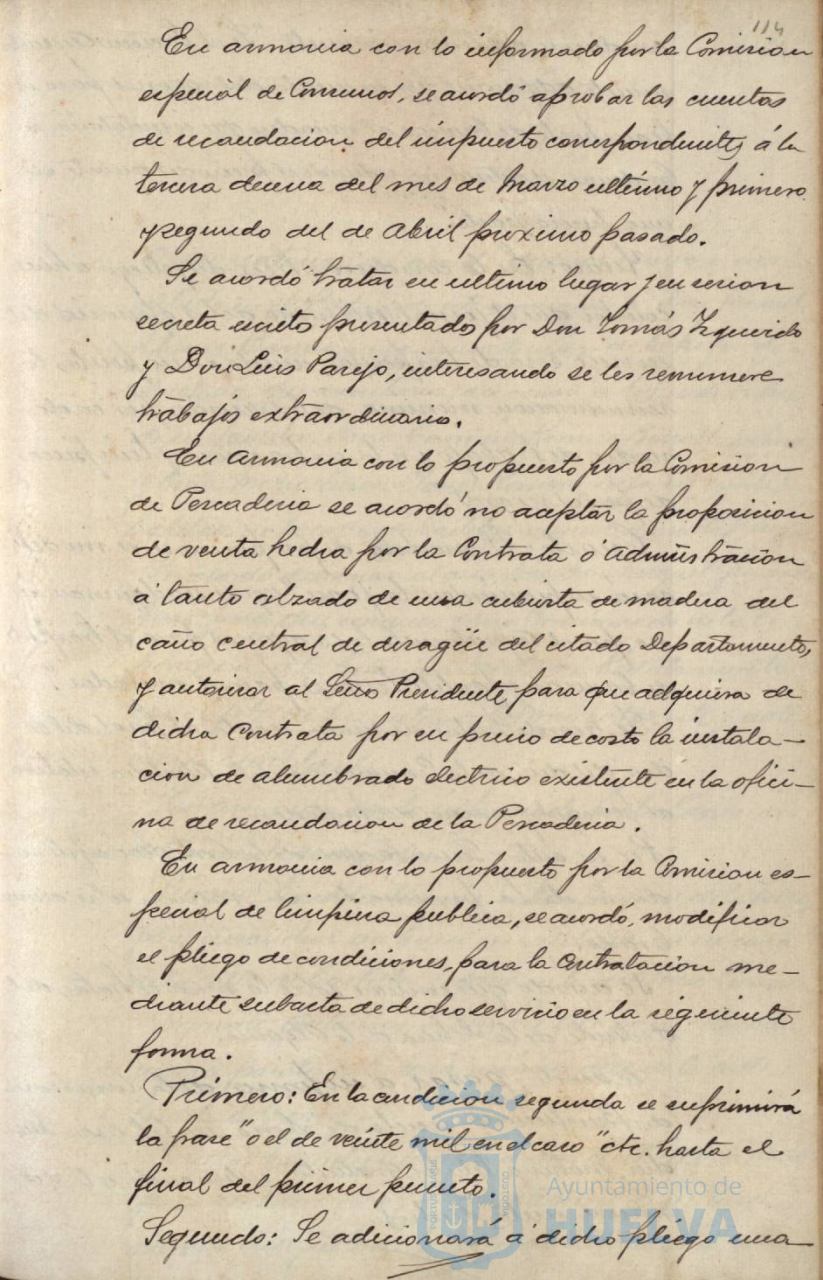 114
En armonia con lo informado por la Comision
especial de Consumos, se acordó aprobar las cuentas
de recaudacion del impuesto correspondientes á la
tercera decena del mes de Marzo ultimo y primera
y segunda del de Abril proximo pasado.
Se acordó tratar en ultimo lugar y en sesion
secreta escrito presentado por Don Tomás Izquierdo
y Don Luis Parejo, interesando se les remunere
trabajos extraordinarios.
En armonia con lo propuesto por la Comision
de Pescaderia se acordó no aceptar la proposicion
de venta hecha por la Contrata ó Administracion
á tanto alzado de una cubierta de madera del
caño central de desagüe del citado Departamento,
y autorizar al Señor Presidente para que adquiera de
dicha Contrata por su precio de costo la instala-
cion de alumbrado electrico existente en la ofici-
na de recaudacion de la Pescaderia.
En armonia con lo propuesto por la Comision es-
pecial de limpieza publica, se acordó, modificar
el pliego de condiciones, para la contratacion me-
diante subasta de dicho servicio en la siguiente
forma.
Primero: En la condicion segunda se suprimirá
la frase "o el de veinte mil en el caso" etc. hasta el
final del primer punto.
Segundo: Se adicionará á dicho pliego una
Ayuntamiento de
HUELVA